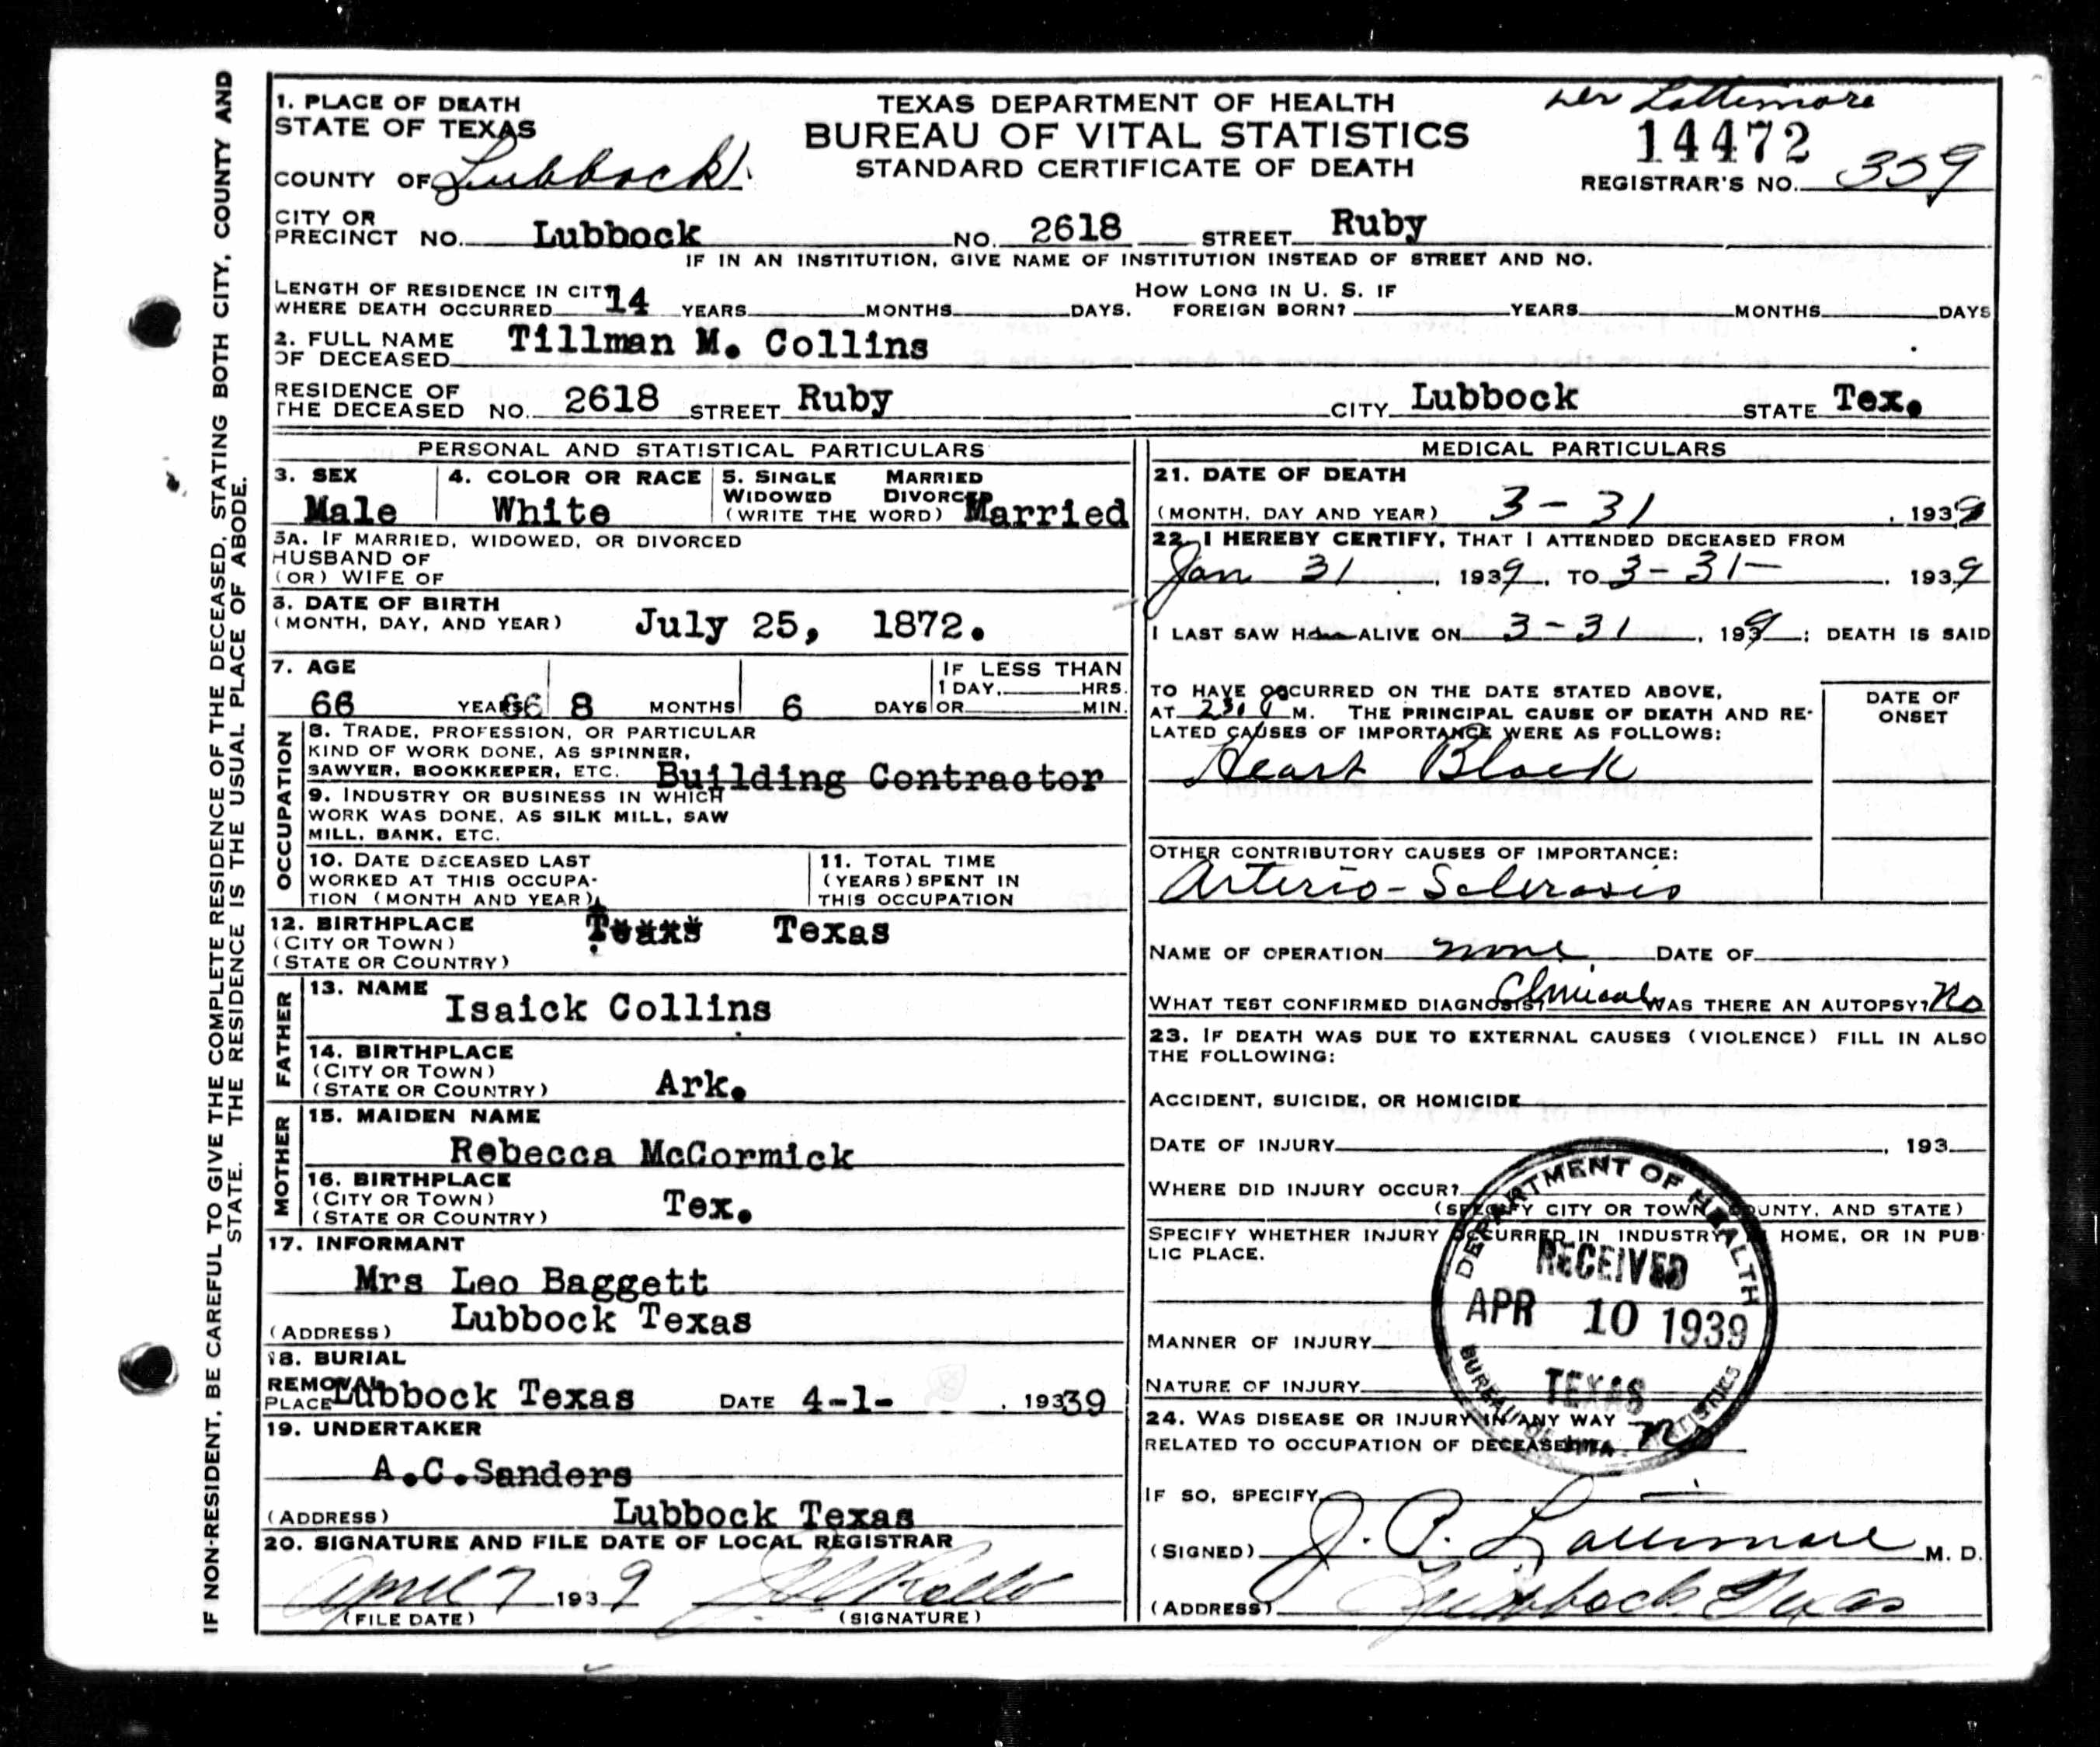 IF NON-RESIDENT, BE CAREFUL TO GIVE THE COMPLETE RESIDENCE OF THE DECEASED, STATING BOTH CITY, COUNTY AND
STATE. THE RESIDENCE IS THE USUAL PLACE OF ABODE.
1. PLACE OF DEATH
STATE OF TEXAS
COUNTY OF Lubbock
TEXAS DEPARTMENT OF HEALTH
BUREAU OF VITAL STATISTICS
STANDARD CERTIFICATE OF DEATH
Lattimore
14472
REGISTRAR'S NO. 359
CITY OR
PRECINCT NO. Lubbock NO. 2618 STREET Ruby
IF IN AN INSTITUTION, GIVE NAME OF INSTITUTION INSTEAD OF STREET AND NO.
LENGTH OF RESIDENCE IN CITY
WHERE DEATH OCCURRED 14 YEARS MONTHS DAYS. HOW LONG IN U. S. IF
FOREIGN BORN? YEARS MONTHS DAYS
2. FULL NAME
OF DECEASED Tillman M. Collins
RESIDENCE OF
THE DECEASED NO. 2618 STREET Ruby CITY Lubbock STATE Tex.
PERSONAL AND STATISTICAL PARTICULARS
3. SEX
Male
4. COLOR OR RACE
White
5. SINGLE MARRIED
WIDOWED DIVORCED
(WRITE THE WORD) Married
3A. IF MARRIED, WIDOWED, OR DIVORCED
HUSBAND OF
(OR) WIFE OF
6. DATE OF BIRTH
(MONTH, DAY, AND YEAR) July 25, 1872.
7. AGE
66 YEARS 66 8 MONTHS 6 DAYS
IF LESS THAN
1 DAY, HRS.
OR MIN.
OCCUPATION
8. TRADE, PROFESSION, OR PARTICULAR
KIND OF WORK DONE, AS SPINNER,
SAWYER, BOOKKEEPER, ETC. Building Contractor
9. INDUSTRY OR BUSINESS IN WHICH
WORK WAS DONE, AS SILK MILL, SAW
MILL, BANK, ETC.
10. DATE DECEASED LAST
WORKED AT THIS OCCUPA-
TION (MONTH AND YEAR)
11. TOTAL TIME
(YEARS) SPENT IN
THIS OCCUPATION
12. BIRTHPLACE
(CITY OR TOWN)
(STATE OR COUNTRY)
Texas
FATHER
13. NAME
Isaick Collins
14. BIRTHPLACE
(CITY OR TOWN)
(STATE OR COUNTRY) Ark.
MOTHER
15. MAIDEN NAME
Rebecca McCormick
16. BIRTHPLACE
(CITY OR TOWN)
(STATE OR COUNTRY) Tex.
17. INFORMANT
Mrs Leo Baggett
(ADDRESS) Lubbock Texas
18. BURIAL
REMOVAL
PLACE Lubbock Texas DATE 4-1- , 19339
19. UNDERTAKER
A.C.Sanders
(ADDRESS) Lubbock Texas
20. SIGNATURE AND FILE DATE OF LOCAL REGISTRAR
April 7 1939
(FILE DATE) (SIGNATURE)
MEDICAL PARTICULARS
21. DATE OF DEATH
(MONTH, DAY AND YEAR) 3-31 , 1939
22. I HEREBY CERTIFY, THAT I ATTENDED DECEASED FROM
Jan 31 , 1939, TO 3-31- , 1939
I LAST SAW H ALIVE ON 3-31 , 199; DEATH IS SAID
TO HAVE OCCURRED ON THE DATE STATED ABOVE,
AT M. THE PRINCIPAL CAUSE OF DEATH AND RE-
LATED CAUSES OF IMPORTANCE WERE AS FOLLOWS:
DATE OF
ONSET
Heart Block
OTHER CONTRIBUTORY CAUSES OF IMPORTANCE:
Arterio-Sclerosis
NAME OF OPERATION none DATE OF
WHAT TEST CONFIRMED DIAGNOSIS? Clinical WAS THERE AN AUTOPSY? No
23. IF DEATH WAS DUE TO EXTERNAL CAUSES (VIOLENCE) FILL IN ALSO
THE FOLLOWING:
ACCIDENT, SUICIDE, OR HOMICIDE
DATE OF INJURY , 193
WHERE DID INJURY OCCUR?
(SPECIFY CITY OR TOWN, COUNTY, AND STATE)
SPECIFY WHETHER INJURY OCCURRED IN INDUSTRY, HOME, OR IN PUB-
LIC PLACE.
MANNER OF INJURY
NATURE OF INJURY
DEPARTMENT OF HEALTH
RECEIVED
APR 10 1939
TEXAS
BUREAU OF VITAL STATISTICS
24. WAS DISEASE OR INJURY IN ANY WAY
RELATED TO OCCUPATION OF DECEASED? No
IF SO, SPECIFY
(SIGNED) J. P. Lattimore M. D.
(ADDRESS) Lubbock Texas